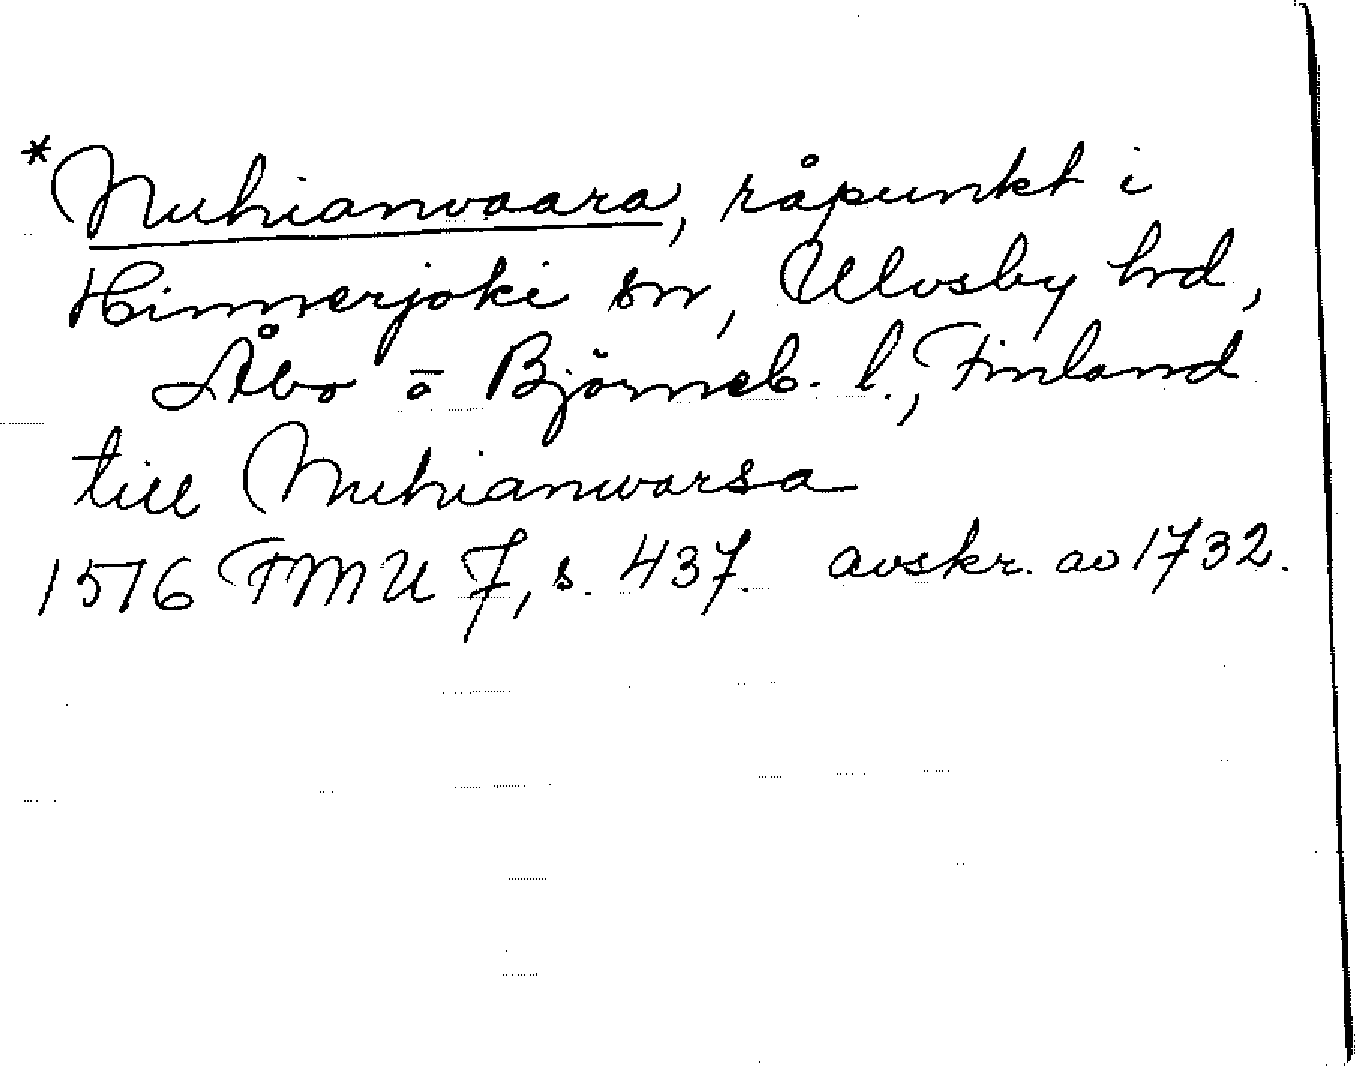 *Nuhianvaara, råpunkt i
Hinnerjoki sn, Ulvsby hd,
Åbo o Björneb. l., Finland
till Nuhianwarsa
1576 FMU 7, s. 437. avskr. av 1732.